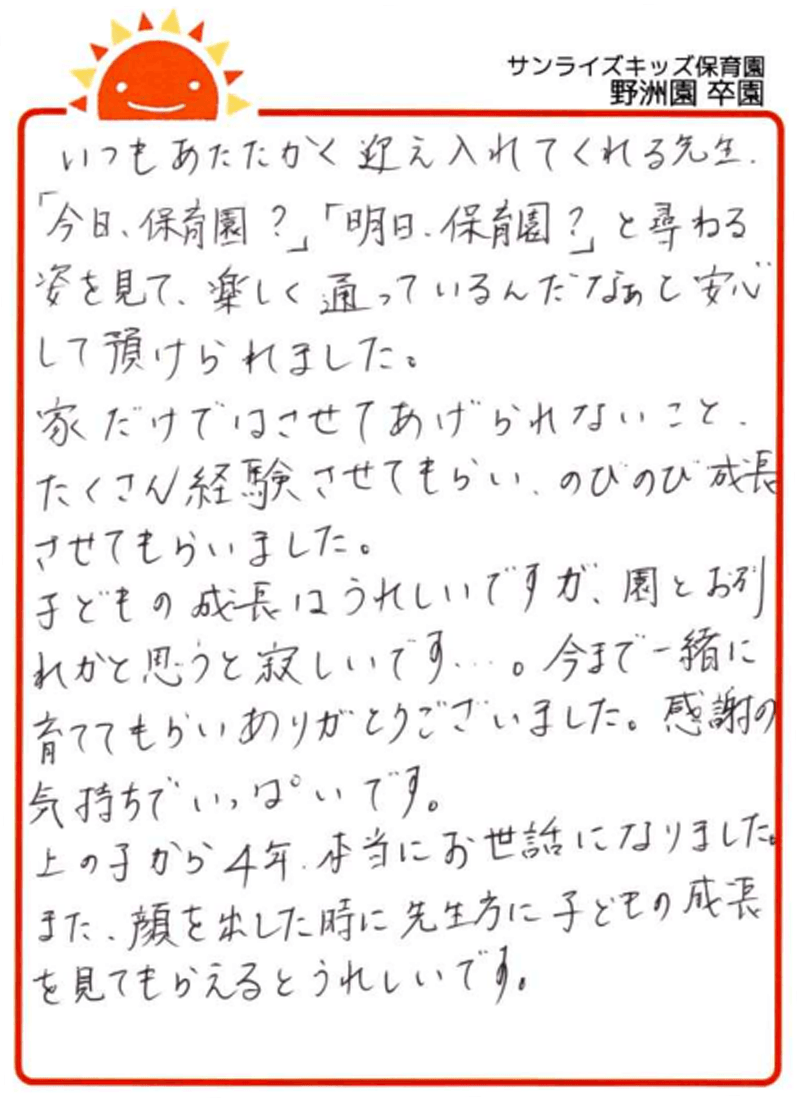 サンライズキッズ保育園
野洲園 卒園
いつもあたたかく迎え入れてくれる先生、
「今日、保育園?」「明日、保育園?」と尋ねる
姿を見て、楽しく通っているんだなぁと安心
して預けられました。
家だけではさせてあげられないこと、
たくさん経験させてもらい、のびのび成長
させてもらいました。
子どもの成長はうれしいですが、園とお別
れかと思うと寂しいです…。今まで一緒に
育ててもらいありがとうございました。感謝の
気持ちでいっぱいです。
上の子から4年、本当にお世話になりました。
また、顔を出した時に先生方に子どもの成長
を見てもらえるとうれしいです。